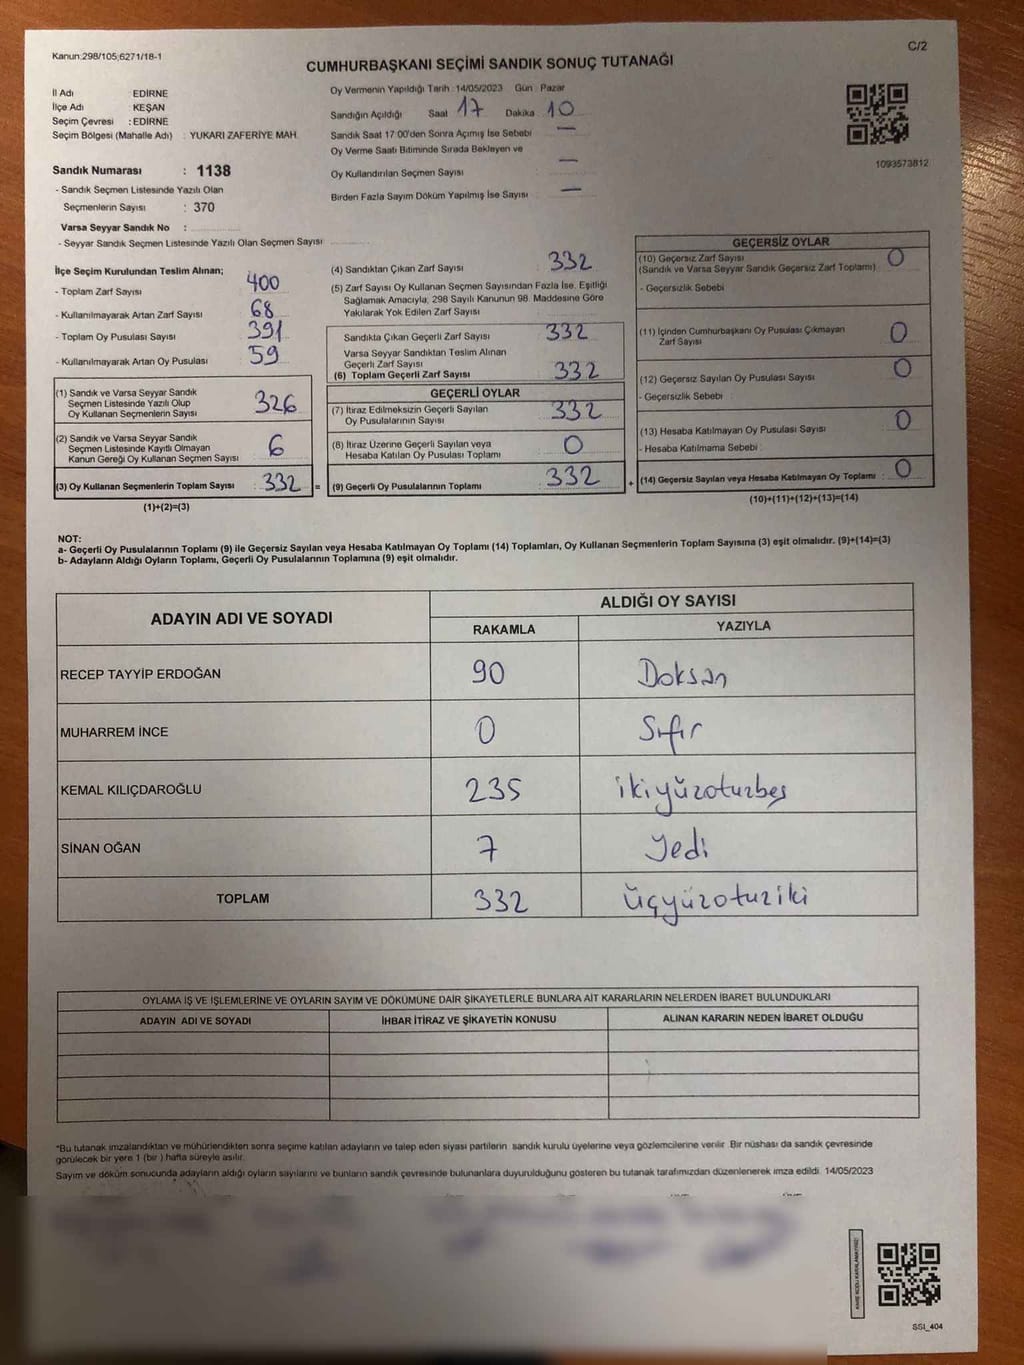 Kanun:298/105;6271/18-1
C/2
CUMHURBAŞKANI SEÇİMİ SANDIK SONUÇ TUTANAĞI
İl Adı : EDİRNE
İlçe Adı : KEŞAN
Seçim Çevresi : EDİRNE
Seçim Bölgesi (Mahalle Adı) : YUKARI ZAFERİYE MAH.
Sandık Numarası : 1138
- Sandık Seçmen Listesinde Yazılı Olan
Seçmenlerin Sayısı : 370
Varsa Seyyar Sandık No :
- Seyyar Sandık Seçmen Listesinde Yazılı Olan Seçmen Sayısı
Oy Vermenin Yapıldığı Tarih : 14/05/2023 Gün : Pazar
Sandığın Açıldığı Saat 17 Dakika 10
Sandık Saat 17:00'den Sonra Açımış İse Sebebi —
Oy Verme Saati Bitiminde Sırada Bekleyen ve
Oy Kullandırılan Seçmen Sayısı —
Birden Fazla Sayım Döküm Yapılmış İse Sayısı —
1093573812
İlçe Seçim Kurulundan Teslim Alınan;
- Toplam Zarf Sayısı 400
- Kullanılmayarak Artan Zarf Sayısı 68
- Toplam Oy Pusulası Sayısı 391
- Kullanılmayarak Artan Oy Pusulası 59
(1) Sandık ve Varsa Seyyar Sandık
Seçmen Listesinde Yazılı Olup
Oy Kullanan Seçmenlerin Sayısı 326
(2) Sandık ve Varsa Seyyar Sandık
Seçmen Listesinde Kayıtlı Olmayan
Kanun Gereği Oy Kullanan Seçmen Sayısı 6
(3) Oy Kullanan Seçmenlerin Toplam Sayısı : 332 =
(1)+(2)=(3)
(4) Sandıktan Çıkan Zarf Sayısı 332
(5) Zarf Sayısı Oy Kullanan Seçmen Sayısından Fazla İse, Eşitliği
Sağlamak Amacıyla; 298 Sayılı Kanunun 98. Maddesine Göre
Yakılarak Yok Edilen Zarf Sayısı
Sandıkta Çıkan Geçerli Zarf Sayısı 332
Varsa Seyyar Sandıktan Teslim Alınan
Geçerli Zarf Sayısı
(6) Toplam Geçerli Zarf Sayısı 332
GEÇERLİ OYLAR
(7) İtiraz Edilmeksizin Geçerli Sayılan
Oy Pusulalarının Sayısı 332
(8) İtiraz Üzerine Geçerli Sayılan veya
Hesaba Katılan Oy Pusulası Toplamı 0
(9) Geçerli Oy Pusulalarının Toplamı 332 +
GEÇERSİZ OYLAR
(10) Geçersiz Zarf Sayısı 0
(Sandık ve Varsa Seyyar Sandık Geçersiz Zarf Toplamı)
- Geçersizlik Sebebi
(11) İçinden Cumhurbaşkanı Oy Pusulası Çıkmayan
Zarf Sayısı 0
(12) Geçersiz Sayılan Oy Pusulası Sayısı 0
- Geçersizlik Sebebi :
(13) Hesaba Katılmayan Oy Pusulası Sayısı 0
- Hesaba Katılmama Sebebi :
(14) Geçersiz Sayılan veya Hesaba Katılmayan Oy Toplamı : 0
(10)+(11)+(12)+(13)=(14)
NOT:
a- Geçerli Oy Pusulalarının Toplamı (9) ile Geçersiz Sayılan veya Hesaba Katılmayan Oy Toplamı (14) Toplamları, Oy Kullanan Seçmenlerin Toplam Sayısına (3) eşit olmalıdır. (9)+(14)=(3)
b- Adayların Aldığı Oyların Toplamı, Geçerli Oy Pusulalarının Toplamına (9) eşit olmalıdır.
ADAYIN ADI VE SOYADI
ALDIĞI OY SAYISI
RAKAMLA YAZIYLA
RECEP TAYYİP ERDOĞAN 90 Doksan
MUHARREM İNCE 0 Sıfır
KEMAL KILIÇDAROĞLU 235 ikiyüzotuzbeş
SİNAN OĞAN 7 Yedi
TOPLAM 332 Üçyüzotuziki
OYLAMA İŞ VE İŞLEMLERİNE VE OYLARIN SAYIM VE DÖKÜMÜNE DAİR ŞİKAYETLERLE BUNLARA AİT KARARLARIN NELERDEN İBARET BULUNDUKLARI
ADAYIN ADI VE SOYADI İHBAR İTİRAZ VE ŞİKAYETİN KONUSU ALINAN KARARIN NEDEN İBARET OLDUĞU
*Bu tutanak imzalandıktan ve mühürlendikten sonra seçime katılan adayların ve talep eden siyasi partilerin sandık kurulu üyelerine veya gözlemcilerine verilir. Bir nüshası da sandık çevresinde
görülecek bir yere 1 (bir) hafta süreyle asılır.
Sayım ve döküm sonucunda adayların aldığı oyların sayılarını ve bunların sandık çevresinde bulunanlara duyurulduğunu gösteren bu tutanak tarafımızdan düzenlenerek imza edildi. 14/05/2023
SSI_404